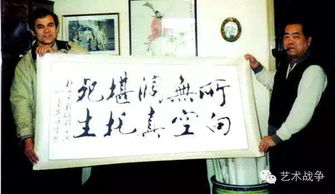 所向
無空
濶真
堪托
死生
艺术战争